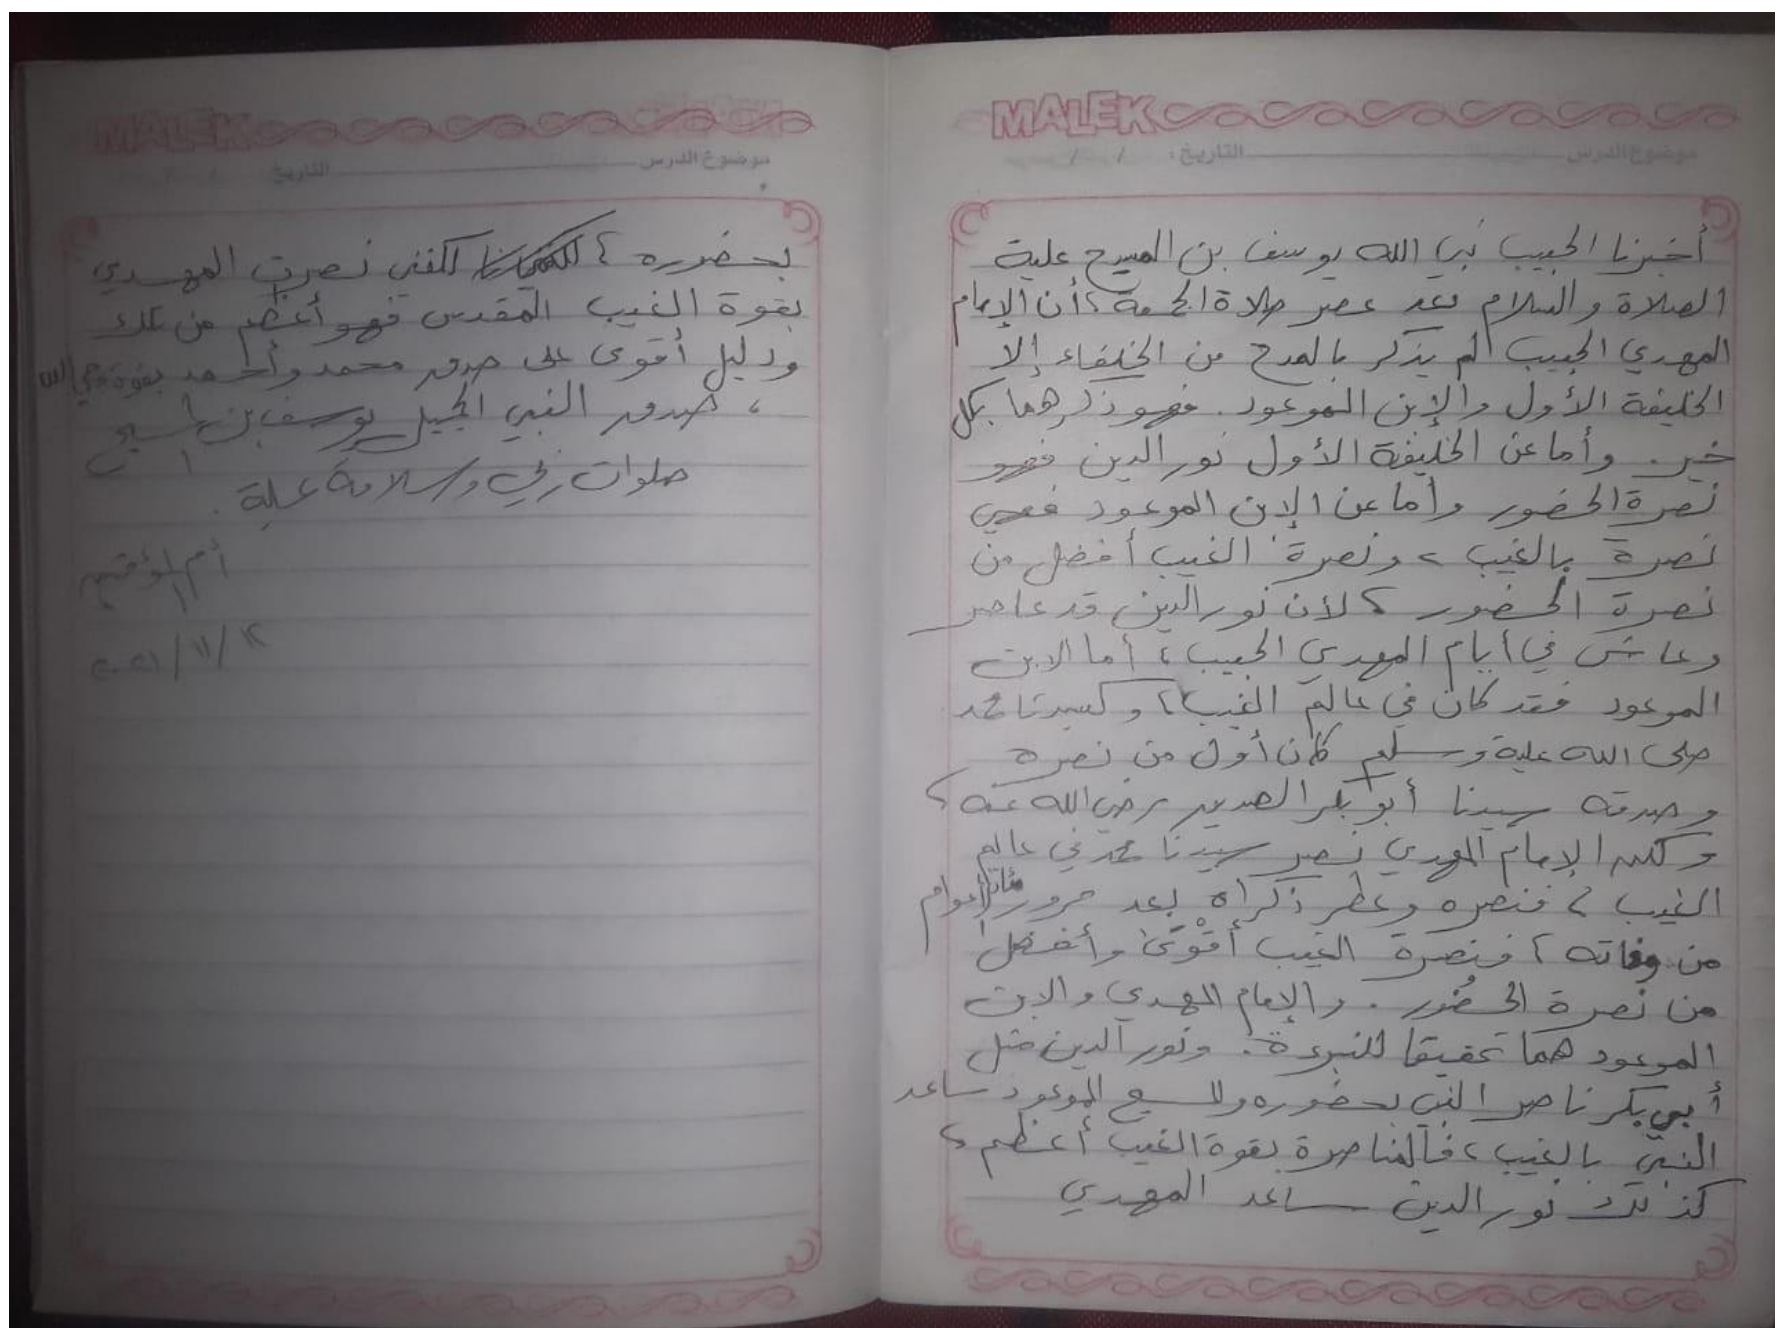 MALEK
موضوع الدرس التاريخ: / /
أخبرنا الحبيب نبي الله يوسف بن المسيح عليه
الصلاة والسلام بعد عصر صلاة الجمعة، أن الإمام
المهدي الحبيب لم يذكر بالمدح من الخلفاء إلا
الخليفة الأول والإبن الموعود. فهو ذكرهما بكل
خير. وأما عن الخليفة الأول نور الدين فهو
نصرة الحضور وأما عن الإبن الموعود فهي
نصرة بالغيب، ونصرة الغيب أفضل من
نصرة الحضور، لأن نور الدين قد عاصر
وعاش في أيام المهدي الحبيب، أما الابن
الموعود فقد كان في عالم الغيب، وكسيدنا محمد
صلى الله عليه وسلم كان أول من نصره
وصدقه سيدنا أبو بكر الصديق رضي الله عنه،
ولكن الإمام المهدي نصر سيدنا محمد في عالم
الغيب، فنصره وعطر ذكراه بعد مرور مئات أعوام
من وفاته، فنصرة الغيب أقوى وأفضل
من نصرة الحضور. والإمام المهدي والابن
الموعود هما تحقيقا للنبوءة. ونور الدين مثل
أبي بكر ناصر النبي بحضوره والمسيح الموعود ساعد
النبي بالغيب، فالمناصرة بقوة الغيب أعظم،
كذلك نور الدين ساعد المهدي
MALEK
موضوع الدرس التاريخ / /
بحضوره، لكنني نصرت المهدي
بقوة الغيب المقدس فهو أعظم من تلك
ودليل أقوى على صدق محمد وأحمد بقوة وحي الله
، صدق النبي الجميل يوسف بن المسيح
صلوات ربي وسلامه عليه.
أم المؤمنين
١٢/١١/٢٠٢١